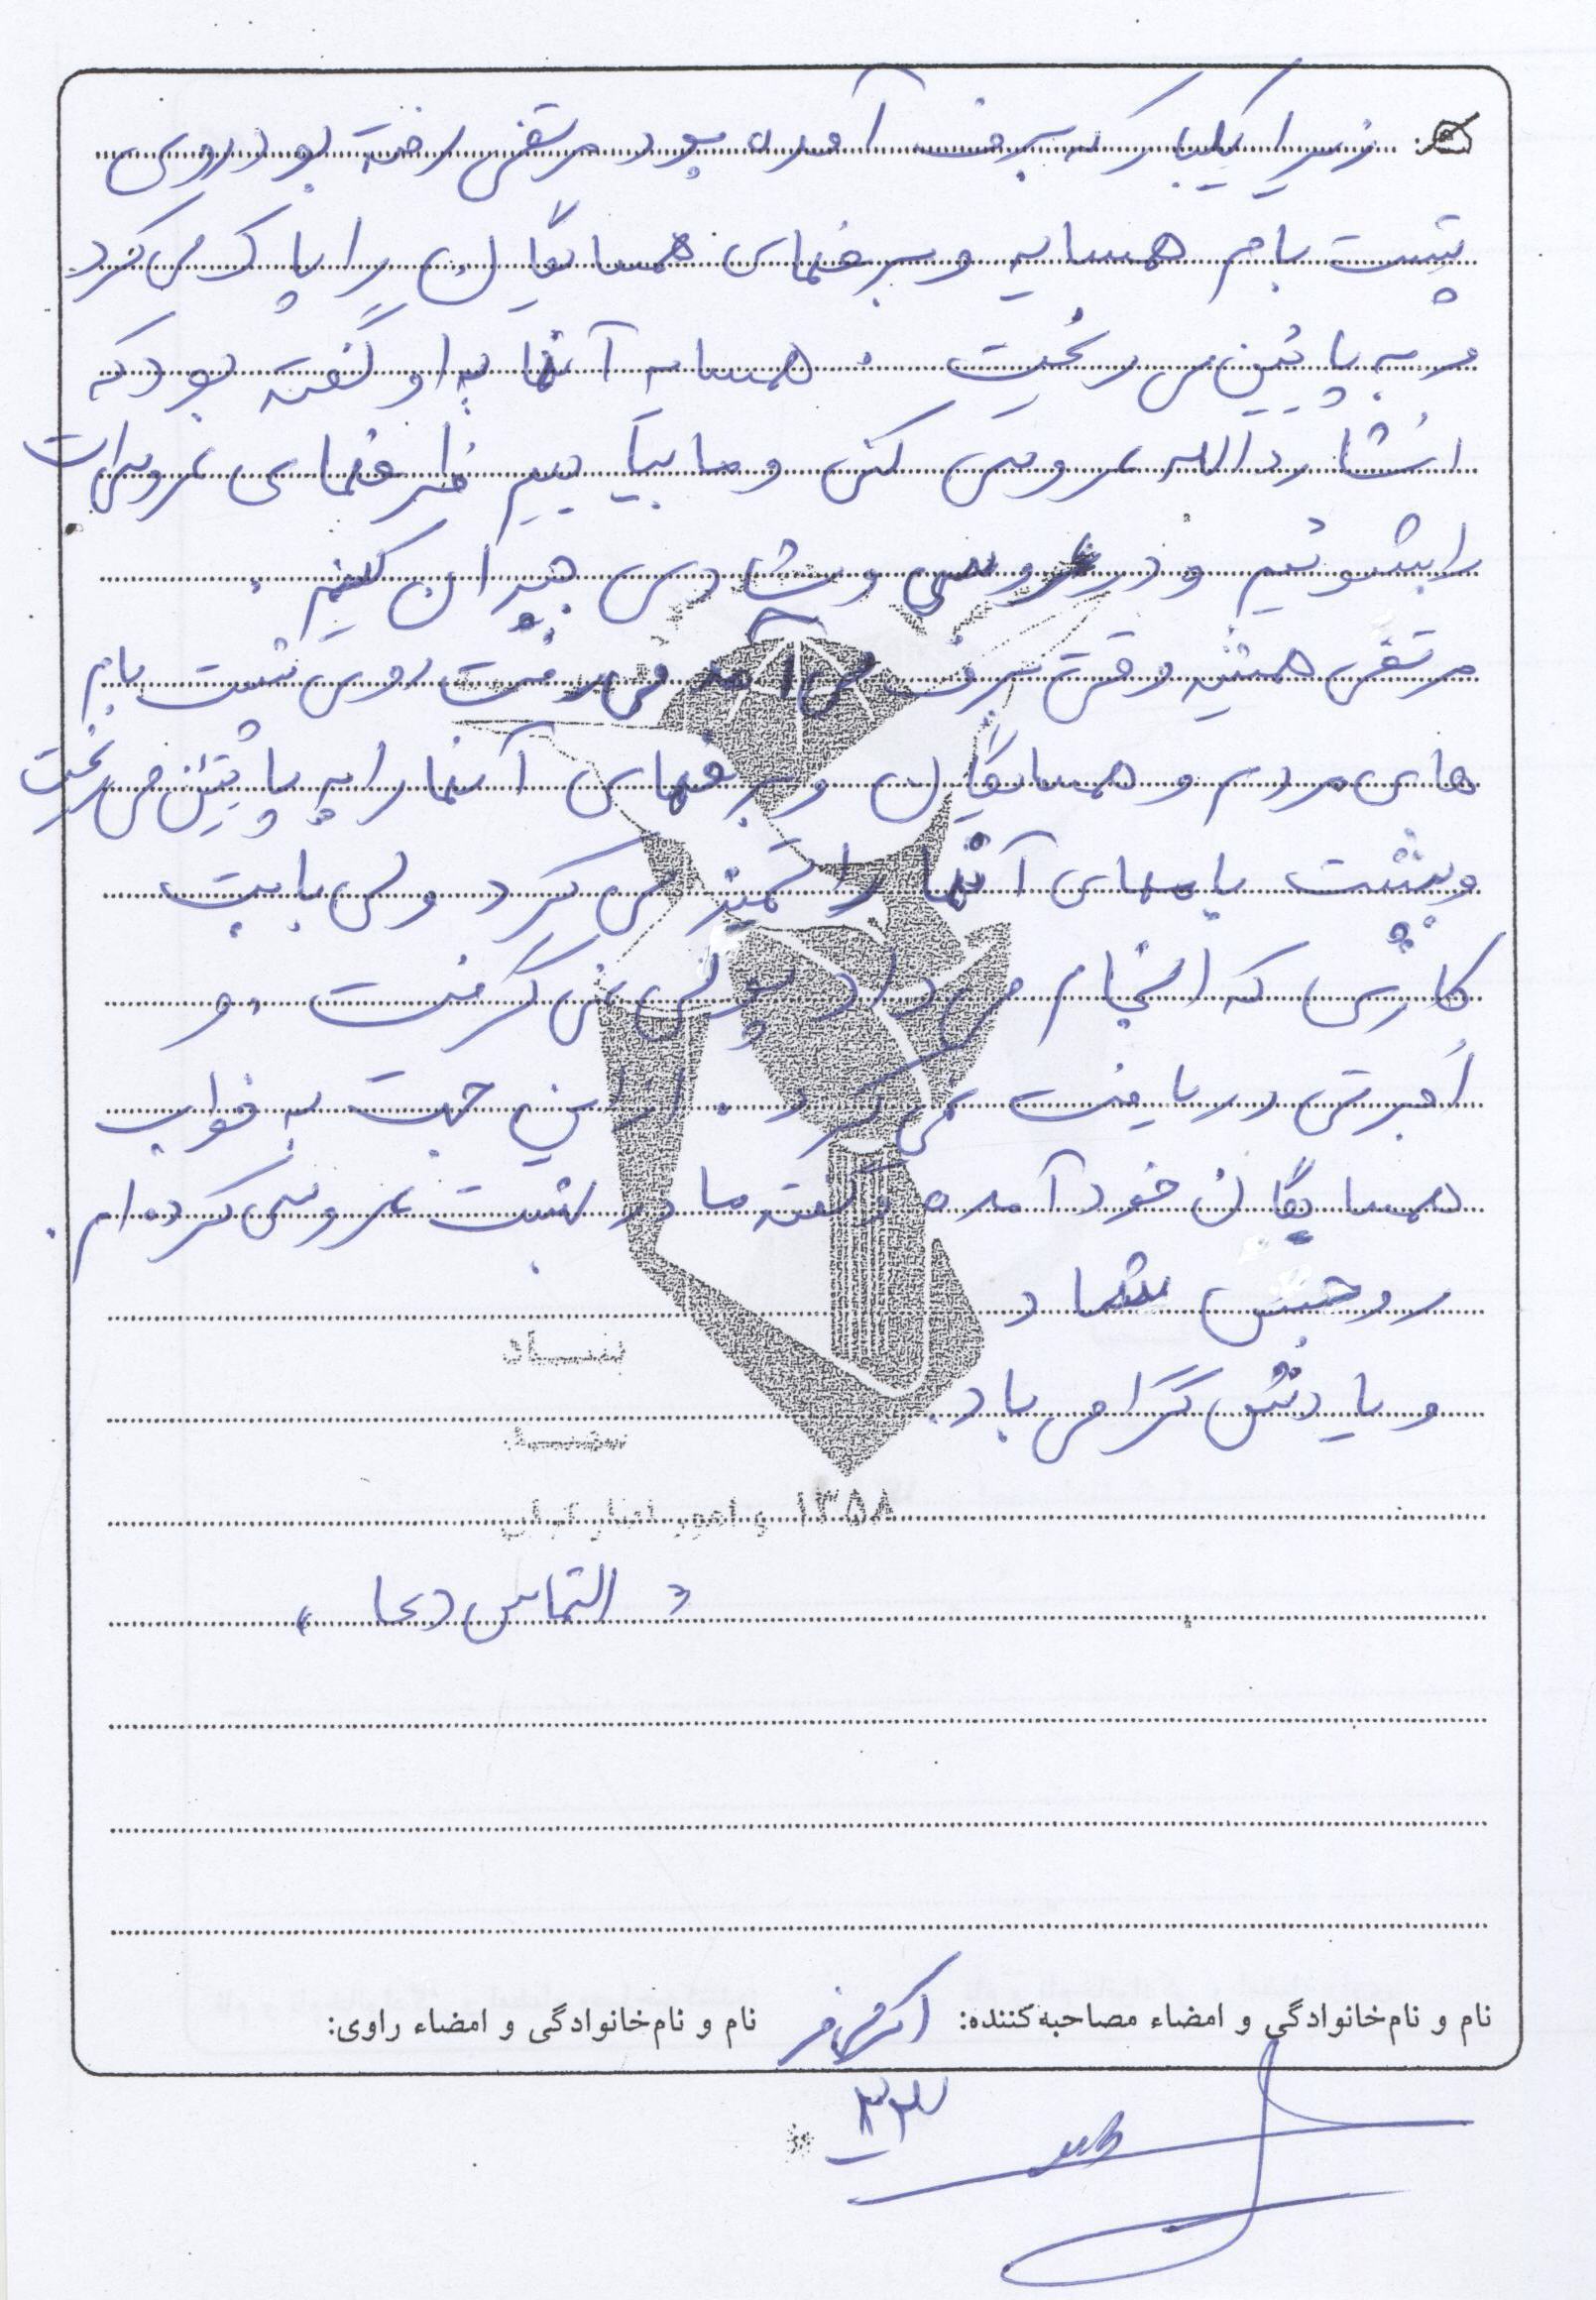 زیرا یکبار که برف آمده بود مرتضی رفته بود روی
پشت بام همسایه و برفهای همسایگان را پاک می کرد
و به پائین می ریخت . همسایه آنها به او گفته بود که
انشاءالله عروسی کنی و ما بیاییم ظرفهای عروسی‌ات
را بشوئیم و در عروسی و شادی جبران کنیم .
مرتضی همیشه وقتی برف می آمد می رفت روی پشت بام
های مردم و همسایگان و برفهای آنها را به پائین می ریخت
و پشت بامهای آنها را تمیز می کرد ولی بابت
کارش که انجام می داد پولی نمی گرفت و
اجرتی دریافت نمی کرد . از این جهت به خواب
همسایگان خود آمده و گفته ما در بهشت عروسی کرده ام .
روحش شاد
و یادش گرامی باد.
بنیاد
شهید
۱۳۵۸ و امور ایثارگران
« التماس دعا »
نام و نام‌خانوادگی و امضاء مصاحبه‌کننده: نام و نام‌خانوادگی و امضاء راوی: